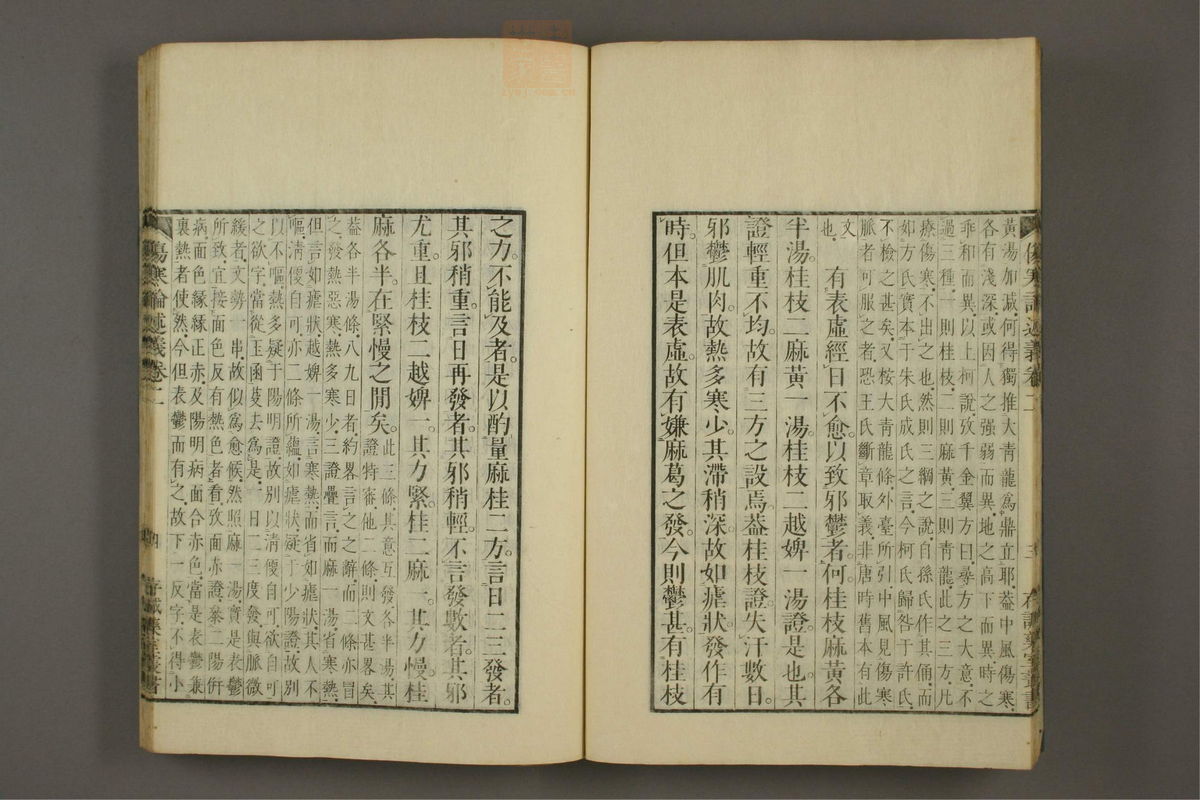 黃湯加減何得獨推大青龍爲鼎立耶葢中風傷寒
各有淺深或因人之强弱而異地之高下而異時之
乖和而異以上柯說攷千金翼方曰尋方之大意不
過三種一則桂枝二則麻黃三則青龍此之三方凡
療傷寒不出之也然則三綱之說自孫氏作其俑而
如方氏實本于朱氏成氏之言今柯氏歸咎于許氏
不檢之甚矣又桉大青龍條外臺所引中風見傷寒
脈者可服之者恐王氏斷章取義非唐時舊本有此
文
也
有表虛經日不愈以致邪鬱者何桂枝麻黃各
半湯桂枝二麻黃一湯桂枝二越婢一湯證是也其
證輕重不均故有三方之設焉葢桂枝證失汗數日
邪鬱肌肉故熱多寒少其滯稍深故如瘧狀發作有
時但本是表虛故有嫌麻葛之發今則鬱甚有桂枝
傷寒論述義卷二 三
之力不能及者是以酌量麻桂二方言日二三發者
其邪稍重言日再發者其邪稍輕不言發數者其邪
尤重且桂枝二越婢一其力緊桂二麻一其力慢桂
麻各半在緊慢之閒矣此三條其意互發各半湯其
證特審他二條則文甚畧矣
葢各半湯條八九日者約畧言之之辭而二條亦冒
之發熱惡寒熱多寒少三證疊言而麻一湯省寒熱
但言如瘧狀越婢一湯言寒熱而省如瘧狀其人不
嘔淸便自可亦二條所蘊如瘧狀疑于少陽證故別
以不嘔熱多疑于陽明證故別以淸便自可欲自可
之欲字當從玉函芟去爲是一日二三度發與脈微
緩者文勢一串故似爲愈候然照麻一湯實是表鬱
所致宜接面色反有熱色者看攷面赤證葢二陽併
病面色緣緣正赤及陽明病面合赤色當是表鬱兼
裏熱者使然今但表鬱而有之故下一反字不得小
傷寒論述義卷二 四 存誠藥室叢書